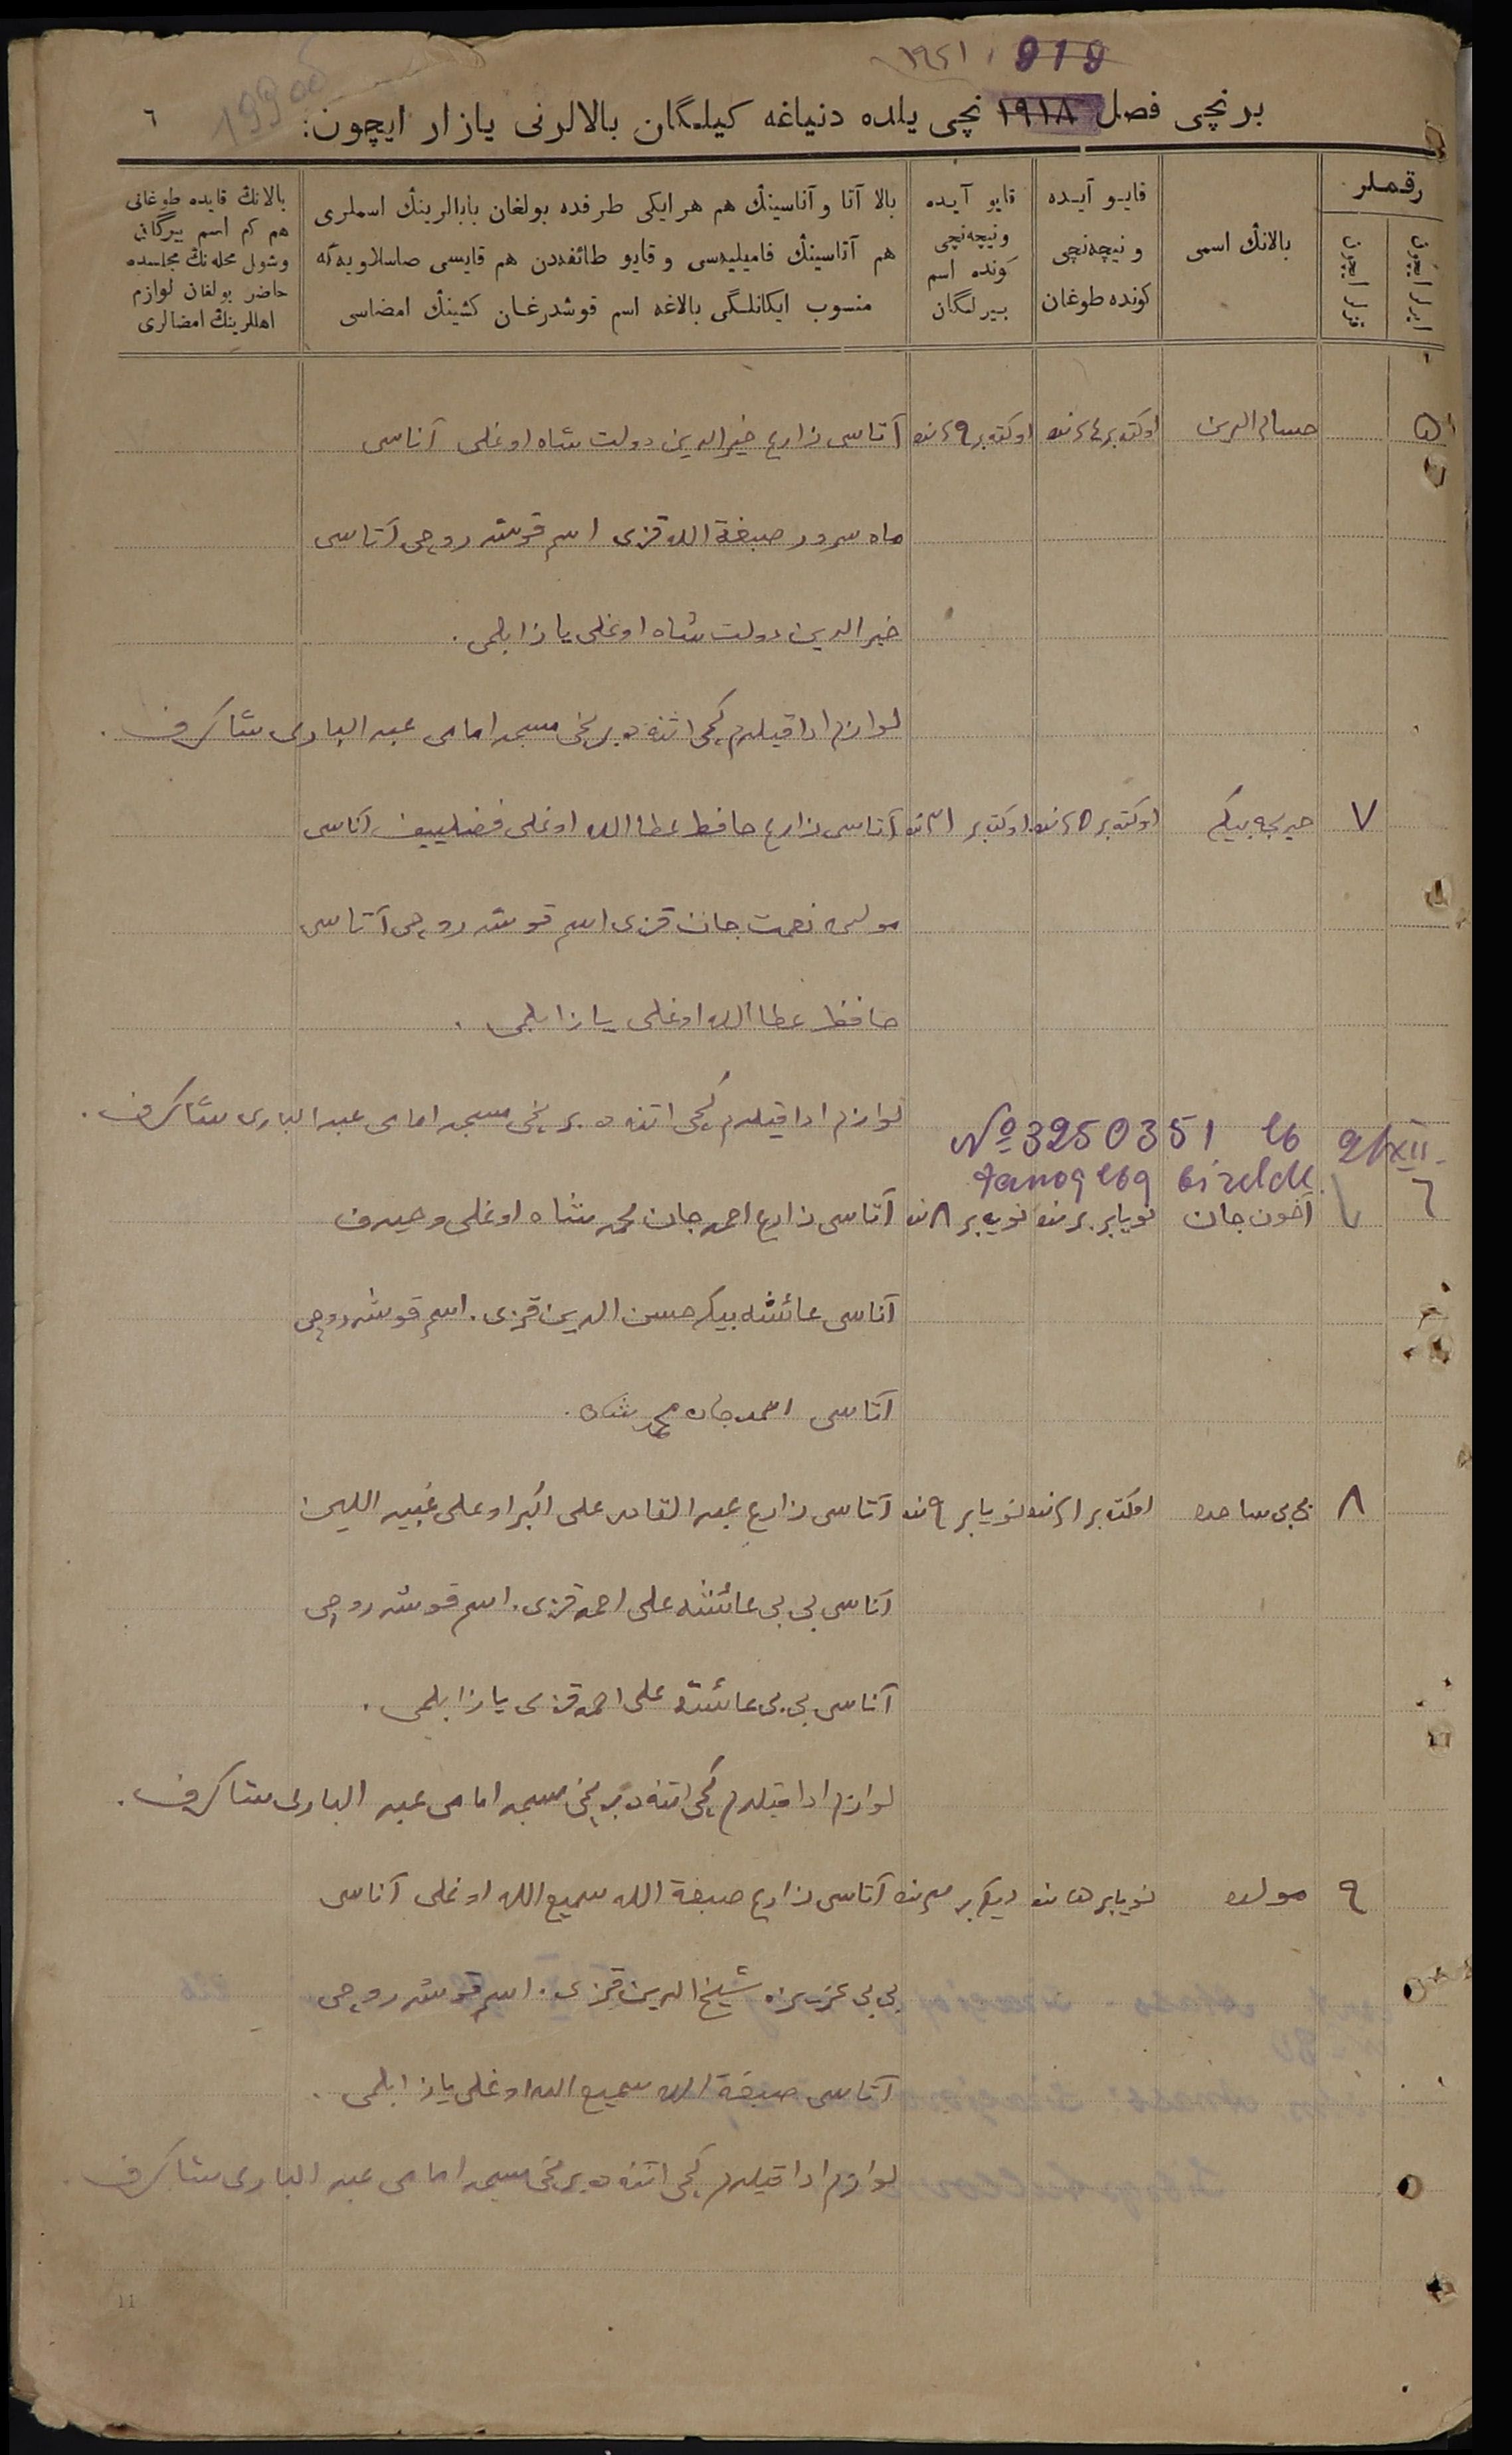 ١٩٢١ 919
برنچی فصل ١٩١٨ نچی یلده دنیاغه کیلگان بالالرنی یازار ایچون:
٦
رقملر
ایرلر ایچون
قزلر ایچون
بالانڭ اسمی
قایو آیده
و نیچه‌نچی
کونده طوغان
قایو آیده
و نیچه‌نچی
کونده اسم
بیرلگان
بالا آتا و آناسینڭ هم هر ایکی طرفده بولغان بابالرینڭ اسملری
هم آتاسینڭ فامیلیه‌سی و قایو طائفه‌دن هم قایسی صاسلاویه‌گه
منسوب ایکانلگی بالاغه اسم قوشدرغان کشینڭ امضاسی
بالانڭ قایده طوغانی
هم کم اسم بیرگانی
وشول محله‌نڭ مجلسده
حاضر بولغان لوازم
اهللرینڭ امضالری
٥ حسام الدین اوکتەبر ٢٤ نده اوکتەبر ٢٩ نده آتاسی زارع خیرالدین دولت شاه اوغلی آناسی
ماه سرور صبغة الله قزی اسم قوشدروچی آتاسی
خیرالدین دولت شاه اوغلی یازا بلمی.
لوازم ادا قیلدم کچی اتنه ده برنچی مسجد امامی عبد الباری شاکرف.
٧ اوکتەبر ٢٥ نده اوکتەبر ٣١ نده آتاسی زارع حافظ عطاالله اوغلی فضلییف آناسی
نعمت جان قزی اسم قوشدروچی آتاسی
حافظ عطاالله اوغلی یازا بلمی.
لوازم ادا قیلدم کچی اتنه ده برنچی مسجد امامی عبد الباری شاکرف.
№ 3250351 26 21/XII
tanoqləq birelde.
٦ آخون جان نویابر ٢ نده نویابر ٨ نده آتاسی زارع احمد جان محمد شاه اوغلی وحیدف
آناسی عائشه بیکه حسن الدین قزی. اسم قوشدروچی
آتاسی احمد جان محمد شاه.
٨ بی بی ساجده اوکتەبر ٢١ نده نویابر ٩ نده آتاسی زارع عبد القادر علی اکبر اوغلی
آناسی بی بی عائشه علی احمد قزی. اسم قوشدروچی
آناسی بی بی عائشه علی احمد قزی یازا بلمی.
لوازم ادا قیلدم کچی اتنه ده برنچی مسجد امامی عبد الباری شاکرف.
٩ نویابر ١٥ نده دیکابر ٣ نده آتاسی زارع صبغة الله سمیع الله اوغلی آناسی
بی بی عزیزه شیخ الدین قزی. اسم قوشدروچی
آتاسی صبغة الله سمیع الله اوغلی یازا بلمی.
لوازم ادا قیلدم کچی اتنه ده برنچی مسجد امامی عبد الباری شاکرف
11